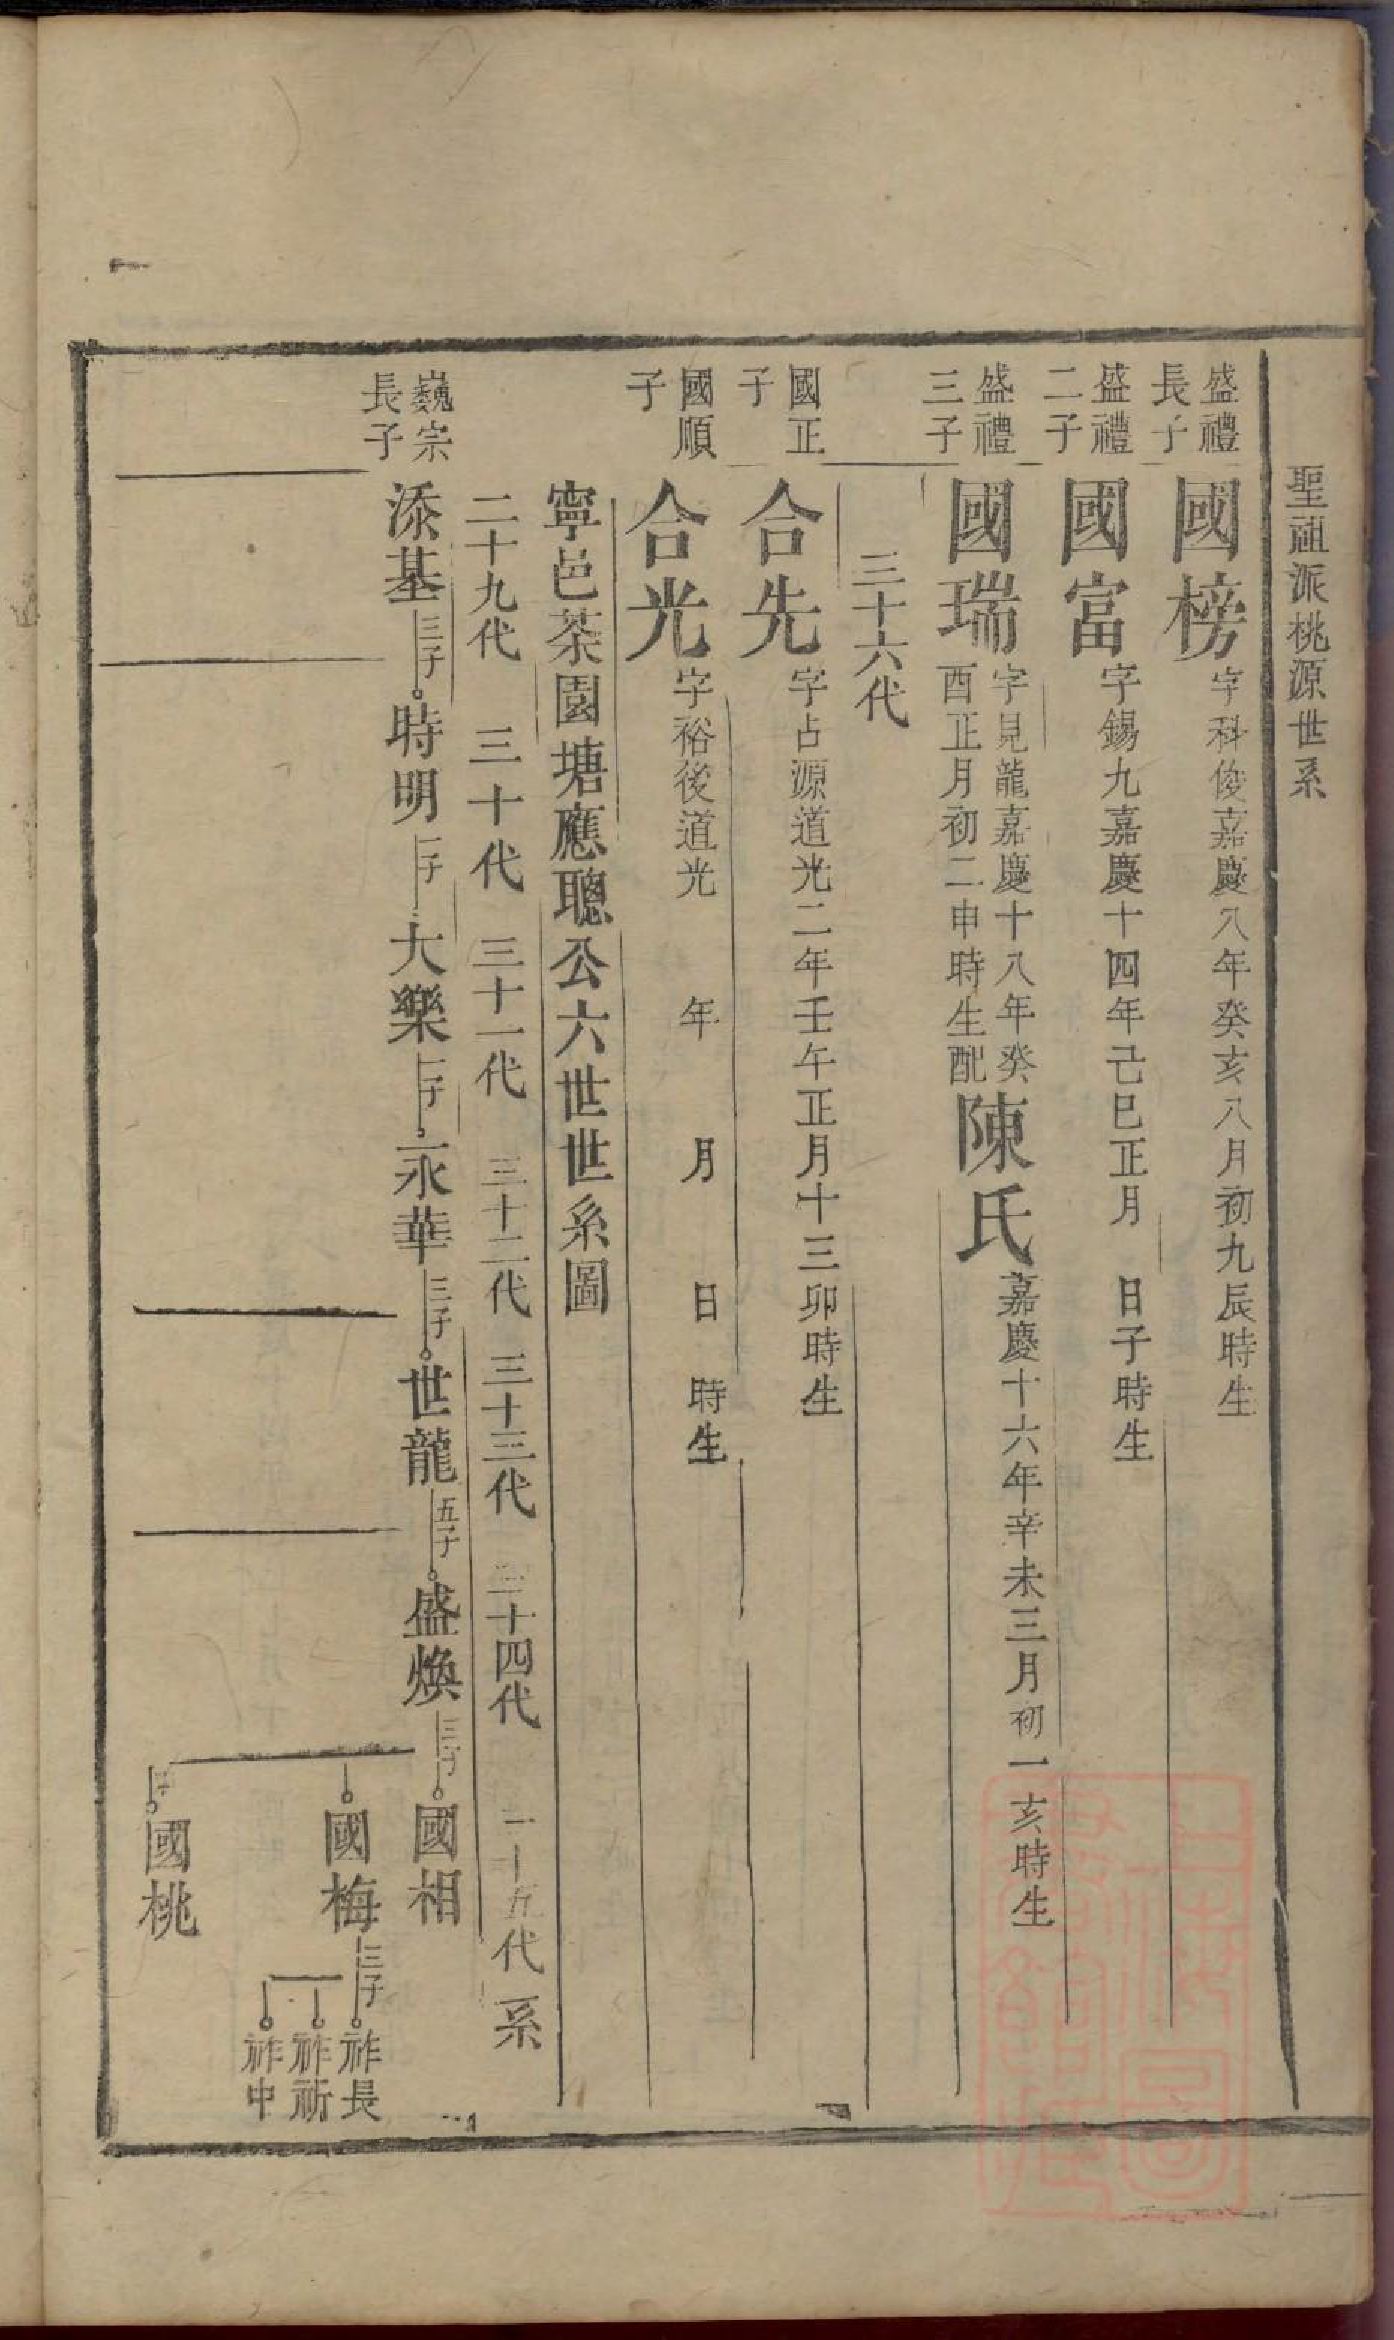 聖祖派桃源世系
盛禮長子
國榜字科俊嘉慶八年癸亥八月初九辰時生
盛禮二子
國富字錫九嘉慶十四年己巳正月 日子時生
盛禮三子
國瑞字見龍嘉慶十八年癸
酉正月初二申時生配
陳氏嘉慶十六年辛未三月初一亥時生
三十六代
國正子
合先字占源道光二年壬午正月十三卯時生
國順子
合光字裕後道光 年 月 日 時生
寧邑茶園塘應聰公六世世系圖
二十九代 三十代 三十一代 三十二代 三十三代 三十四代 三十五代 系
巍宗長子
添基 三子 時明 一子 大樂 一子 永華 三子 世龍 五子 盛煥 三子 國相
國梅 三子 祚長
祚祈
祚中
國桃